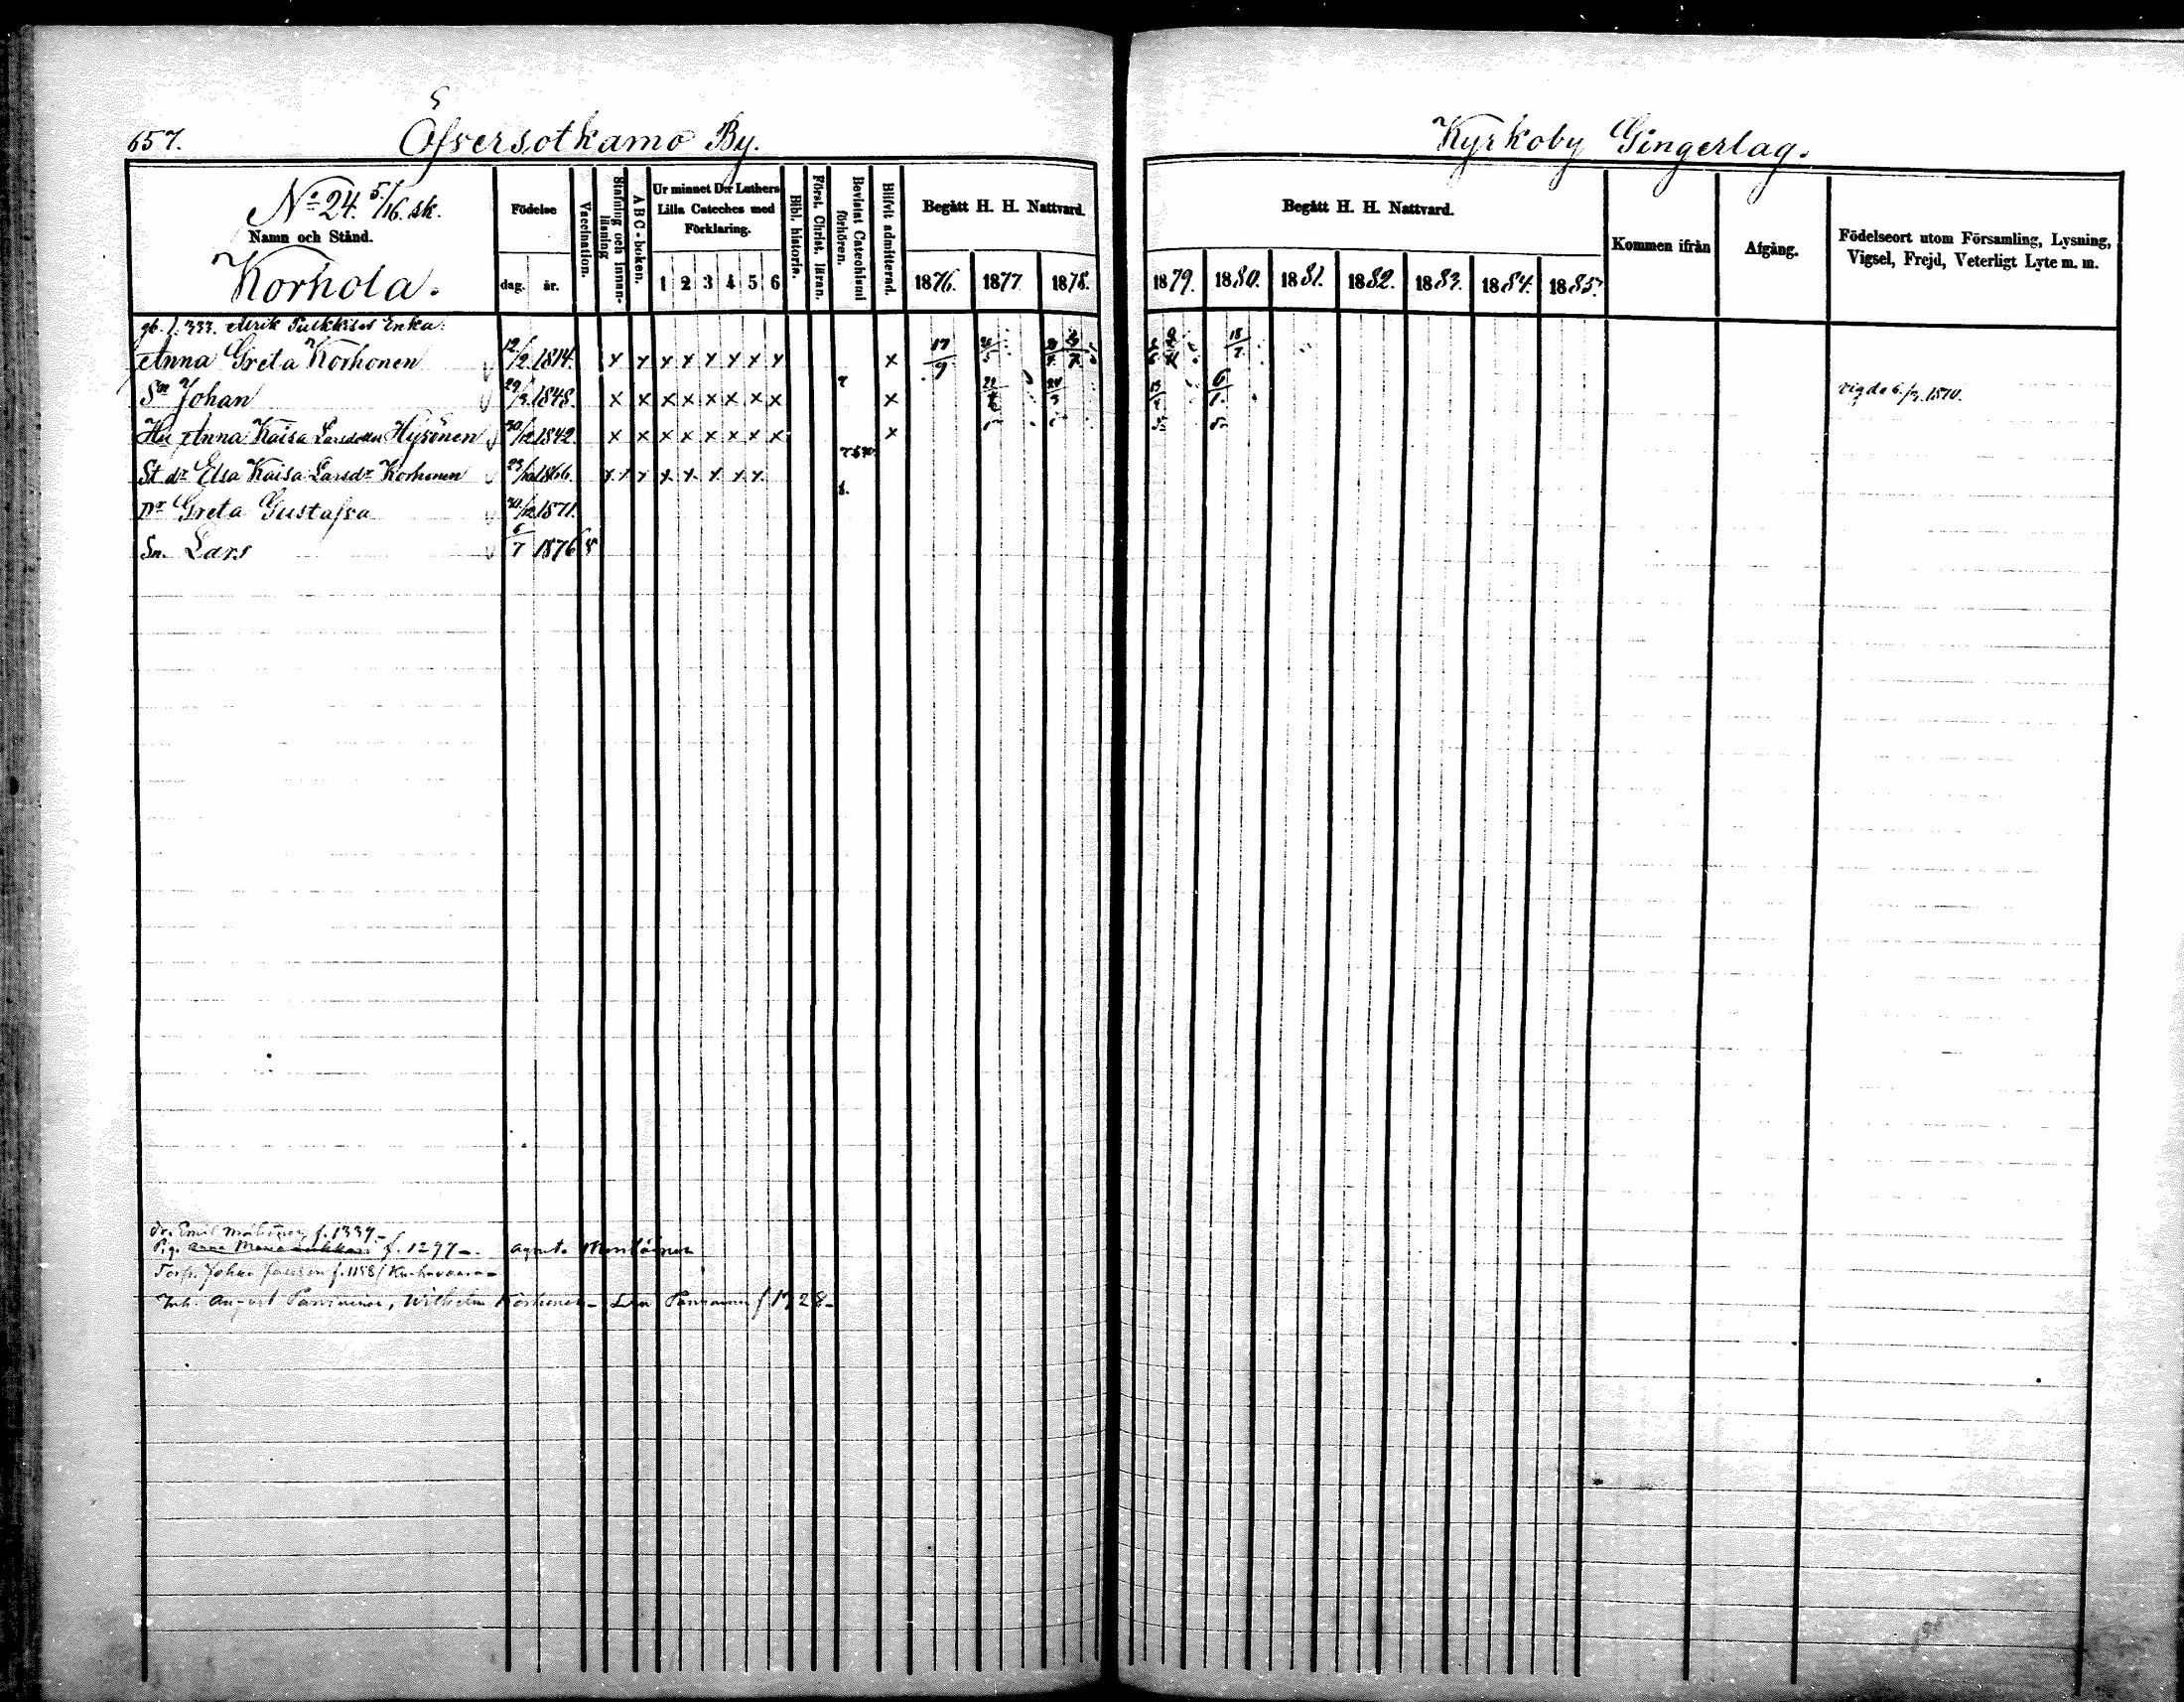 657. Öfversotkamo By.
Kyrkoby Gingerlag.
No 24. 5/16. sk.
Namn och Stånd.
Korhola.
Födelse
dag. år.
Vaccination.
Stafning och innan-läsning
A B C-boken.
Ur minnet D:r Luthers Lilla Cateches med Förklaring.
1 2 3 4 5 6
Bibl. historie.
Först. Christ. läran.
Bevistat Catechismi förhören.
Blifvit admitterad.
Begått H. H. Nattvard.
1876. 1877 1878.
Begått H. H. Nattvard.
1879. 1880. 1881. 1882. 1883. 1884. 1885.
Kommen ifrån
Afgång.
Födelseort utom Församling, Lysning, Vigsel, Frejd, Veterligt Lyte m. m.
f. 333. Enka:
Anna Greta Korhonen 12/2 1814. x x x x x x x x x 17/9 18/7
Sn Johan 29/3 1848. x x x x x x x x x 6/1 vigde 1870.
Hu Anna Kaisa Larsdotter Hyvönen 30/12 1842. x x x x x x x x x
St dr Elsa Kaisa Larsdr Korhonen 1866. x x x x x x x x
Dr Greta Gustafva 1871.
Sn. Lars 6/7 1876
Dr. Emil f. 1339.
Pig. Anna Maria f. 1297
Torp. Johan f. 1158
Inh. August Wilhelm Korhonen f 1728